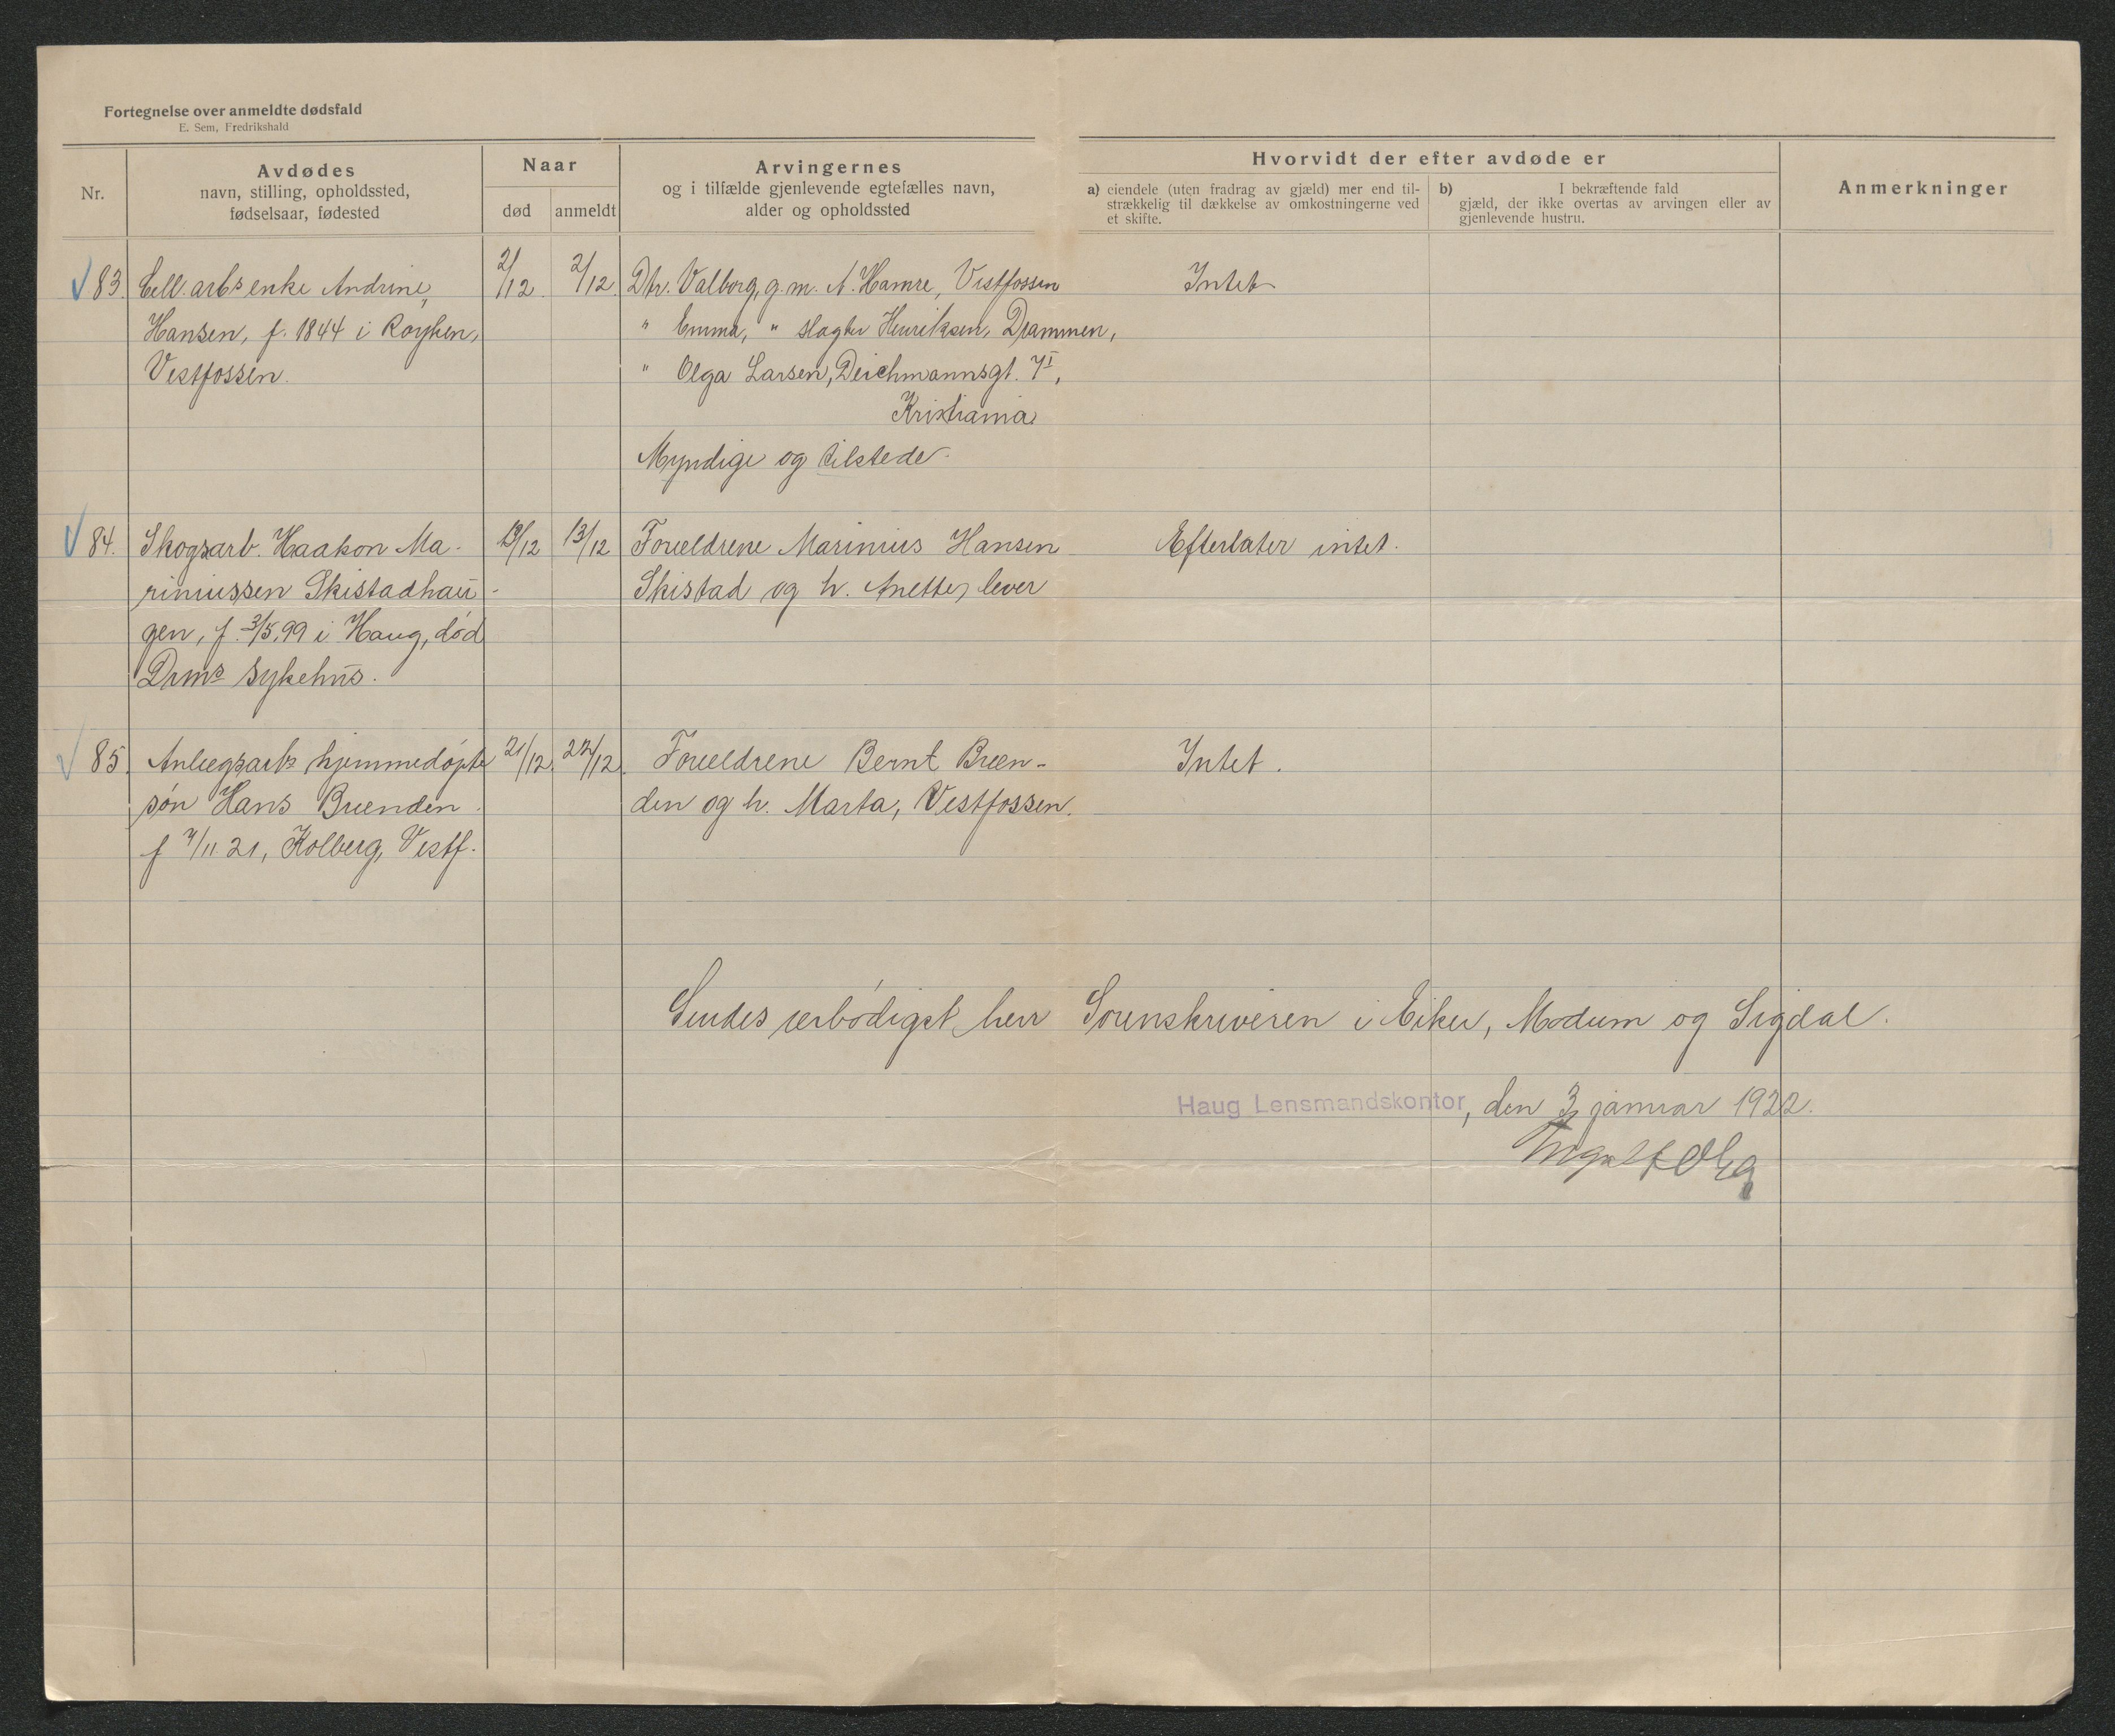 Fortegnelse over anmeldte dødsfald
E. Sem, Fredrikshald
Nr.
Avdødes
navn, stilling, opholdssted,
fødselsaar, fødested
Naar
død
anmeldt
Arvingernes
og i tilfælde gjenlevende egtefælles navn,
alder og opholdssted
Hvorvidt der efter avdøde er
a) eiendele (uten fradrag av gjæld) mer end til-
strækkelig til dækkelse av omkostningerne ved
et skifte.
b) I bekræftende fald
gjæld, der ikke overtas av arvingen eller av
gjenlevende hustru.
Anmerkninger
83. Cell. arbs enke Andrine 2/12 2/12 Dtr. Valborg, g. m. A. Hamre, Vestfossen Intet
Hansen, f. 1844 i Røyken, " Emma, " slagter Henriksen, Drammen,
Vestfossen. " Olga Larsen, Deichmannsgt. 7I,
Kristiania
Myndige og tilstede.
84. Skogsarb. Haakon Ma- 13/12 Forældrene Marinius Hansen Efterlater intet.
riniussen Skistadhau- Skistad og h. Anette, lever
gen, f. 3/5.99 i Haug, død
Drms sykehus.
85. Anlægsarbs hjemmedøpte 21/12. 22/12. Forældrene Bernt Bræn- Intet.
søn Hans Brænden den og h. Marta, Vestfossen.
f 4/11 21, Kolberg, Vestf.
Sendes ærbødigst herr Sorenskriveren i Eiker, Modum og Sigdal.
Haug Lensmandskontor, den 3 januar 1922.